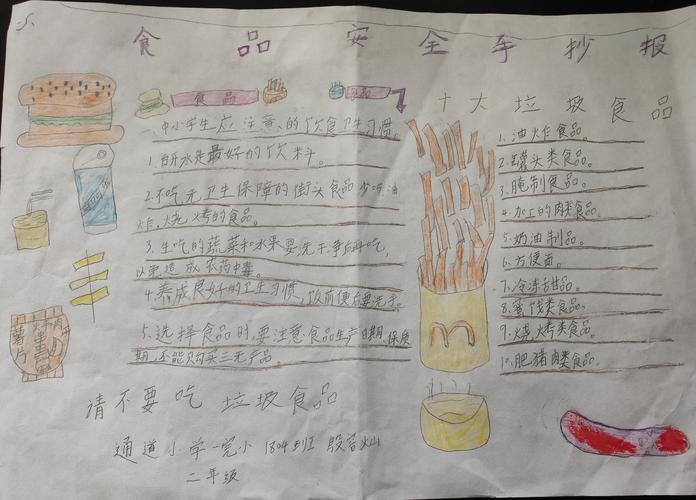 食品安全手抄报
食品
中小学生应注意的饮食卫生习惯。
1.白开水是最好的饮料。
2.不吃无卫生保障的街头食品少吃油
炸,烧烤的食品。
3.生吃的蔬菜和水果要洗干净后再吃,
以免造成农药中毒。
4.养成良好的卫生习惯,饭前便后要洗手。
5.选择食品时,要注意食品生产日期、保质
期,不能购买三无产品
请不要吃垃圾食品
通道小学一完小1804班
二年级
薯片
十大垃圾食品
1.油炸食品。
2.罐头类食品。
3.腌制食品。
4.加工的肉类食品。
5.奶油制品。
6.方便面。
7.冷冻甜品。
8.蜜饯类食品。
9.烧烤类食品。
10.肥猪肉类食品。